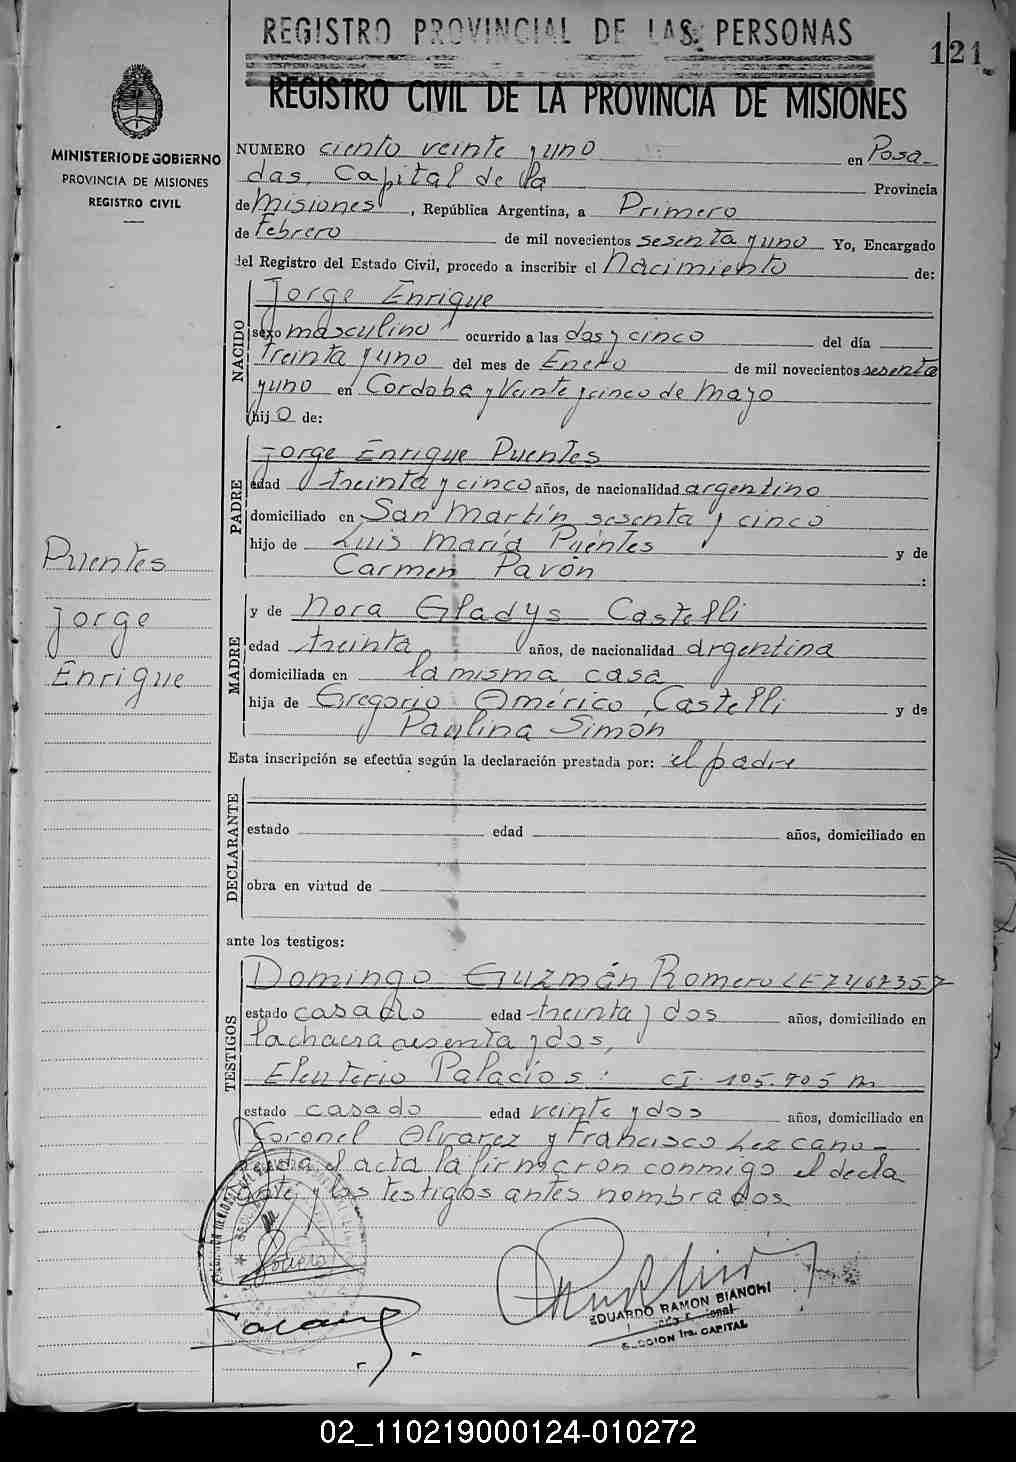 REGISTRO PROVINCIAL DE LAS PERSONAS
121
REGISTRO CIVIL DE LA PROVINCIA DE MISIONES
MINISTERIO DE GOBIERNO
PROVINCIA DE MISIONES
REGISTRO CIVIL
NUMERO ciento veinte y uno en Posa-
das, Capital de la Provincia
de Misiones, República Argentina, a Primero
de Febrero de mil novecientos sesenta y uno Yo, Encargado
del Registro del Estado Civil, procedo a inscribir el Nacimiento de:
NACIDO
Jorge Enrique
sexo masculino ocurrido a las dos y cinco del día
treinta y uno del mes de Enero de mil novecientos sesenta
y uno en Cordoba y Veinte y cinco de Mayo
hijo de:
PADRE
Jorge Enrique Puentes
edad treinta y cinco años, de nacionalidad argentino
domiciliado en San Martín sesenta y cinco
hijo de Luis María Puentes y de
Carmen Pavón :
Puentes
Jorge
Enrique
MADRE
y de Nora Gladys Castelli
edad treinta años, de nacionalidad argentina
domiciliada en la misma casa
hija de Gregorio Américo Castelli y de
Paulina Simón
Esta inscripción se efectúa según la declaración prestada por: el padre
DECLARANTE
estado edad años, domiciliado en
obra en virtud de
ante los testigos:
TESTIGOS
Domingo Guzmán Romero LE 7467357
estado casado edad treinta y dos años, domiciliado en
la chacra sesenta y dos,
Eleuterio Palacios: CI. 105.705 M
estado casado edad veinte y dos años, domiciliado en
Coronel Alvarez y Francisco Lezcano-
Leida el acta la firmaron conmigo el decla
rante y los testigos antes nombrados
EDUARDO RAMON BIANCHI
SECCION 1ra. CAPITAL
02_110219000124-010272